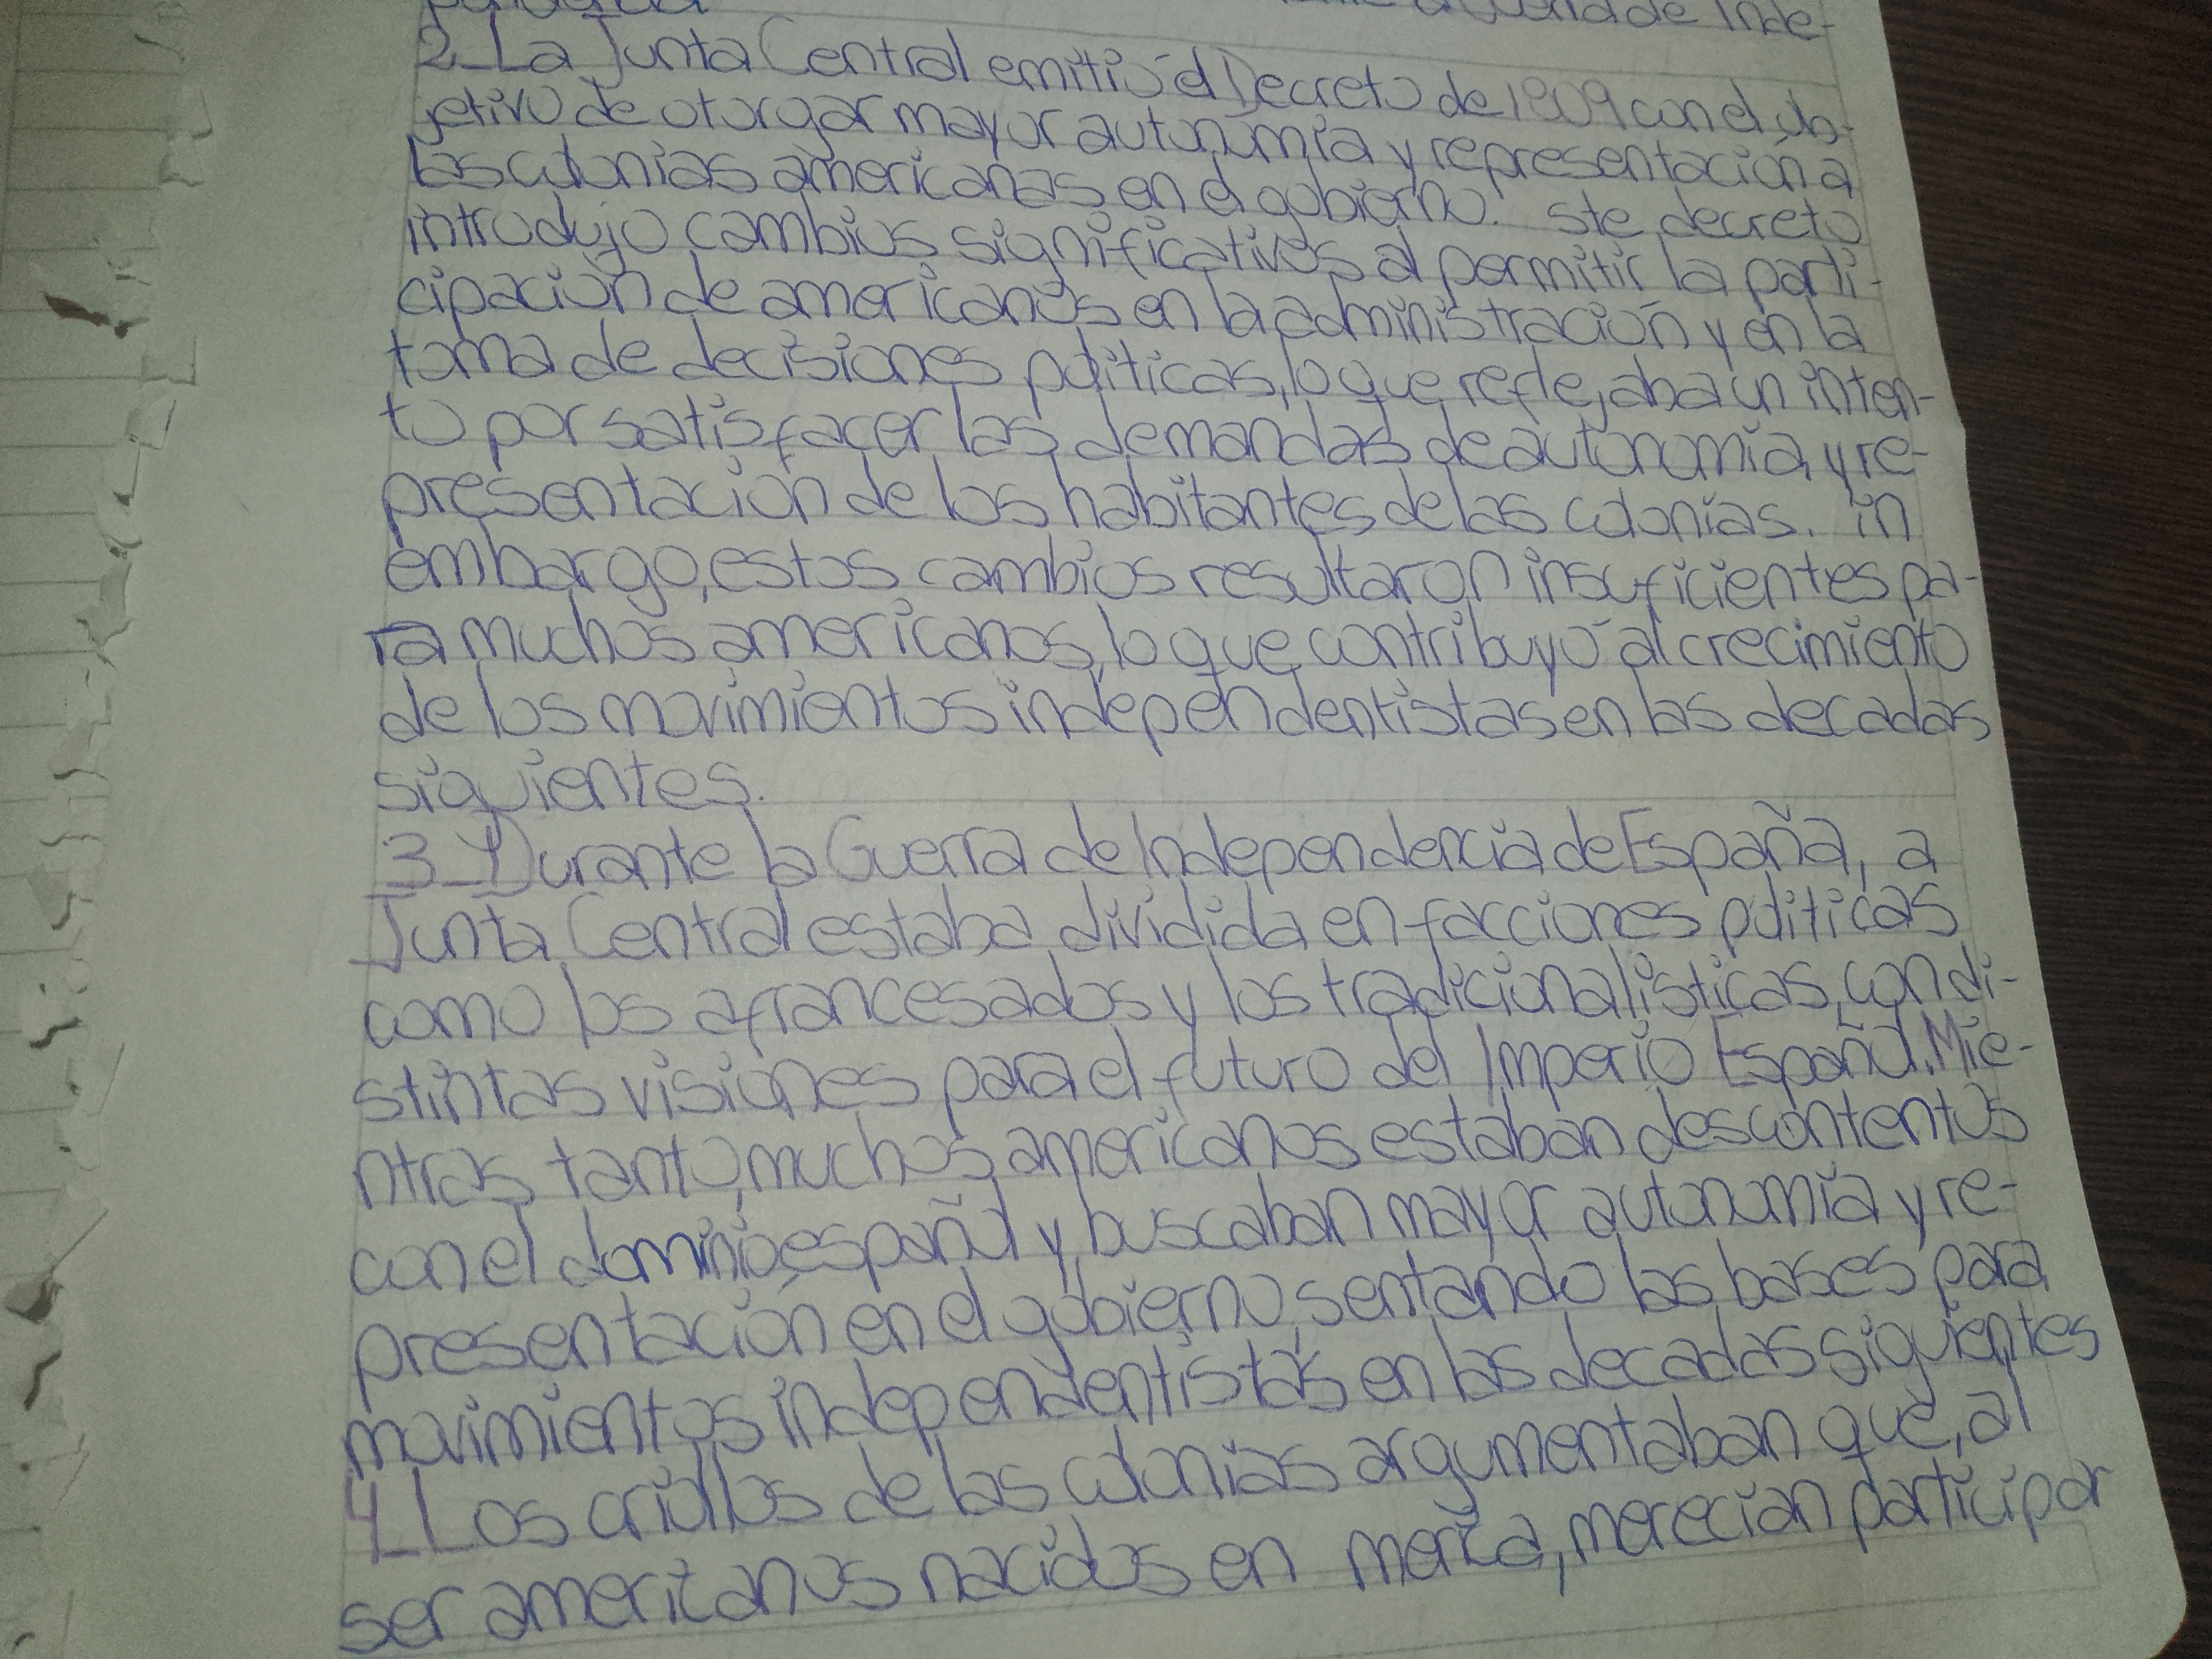 de Inde-
2_La Junta Central emitió el Decreto de 1809 con el ob-
jetivo de otorgar mayor autonomía y representación a
las colonias americanas en el gobierno. ste decreto
introdujo cambios significativos al permitir la parti-
cipación de americanos en la administración y en la
toma de decisiones politicas, lo que reflejaba un inten-
to por satisfacer las demandas de autonomía y re-
presentación de los habitantes de las colonias. in
embargo, estos cambios resultaron insuficientes pa-
ra muchos americanos, lo que contribuyó al crecimiento
de los movimientos independentistas en las decadas
siguientes.
3_Durante la Guerra de Independencia de España, a
Junta Central estaba dividida en facciones politicas
como los afrancesados y los tradicionalisticas, con di-
stintas visiones para el futuro del Imperio Español. Mie-
ntras tanto, muchos americanos estaban descontentos
con el dominio español y buscaban mayor autonomía y re-
presentación en el gobierno, sentando las bases para
movimientos independentistas en las decadas siguientes
4_Los criollos de las colonias argumentaban que, al
ser americanos nacidos en merica, merecian participar